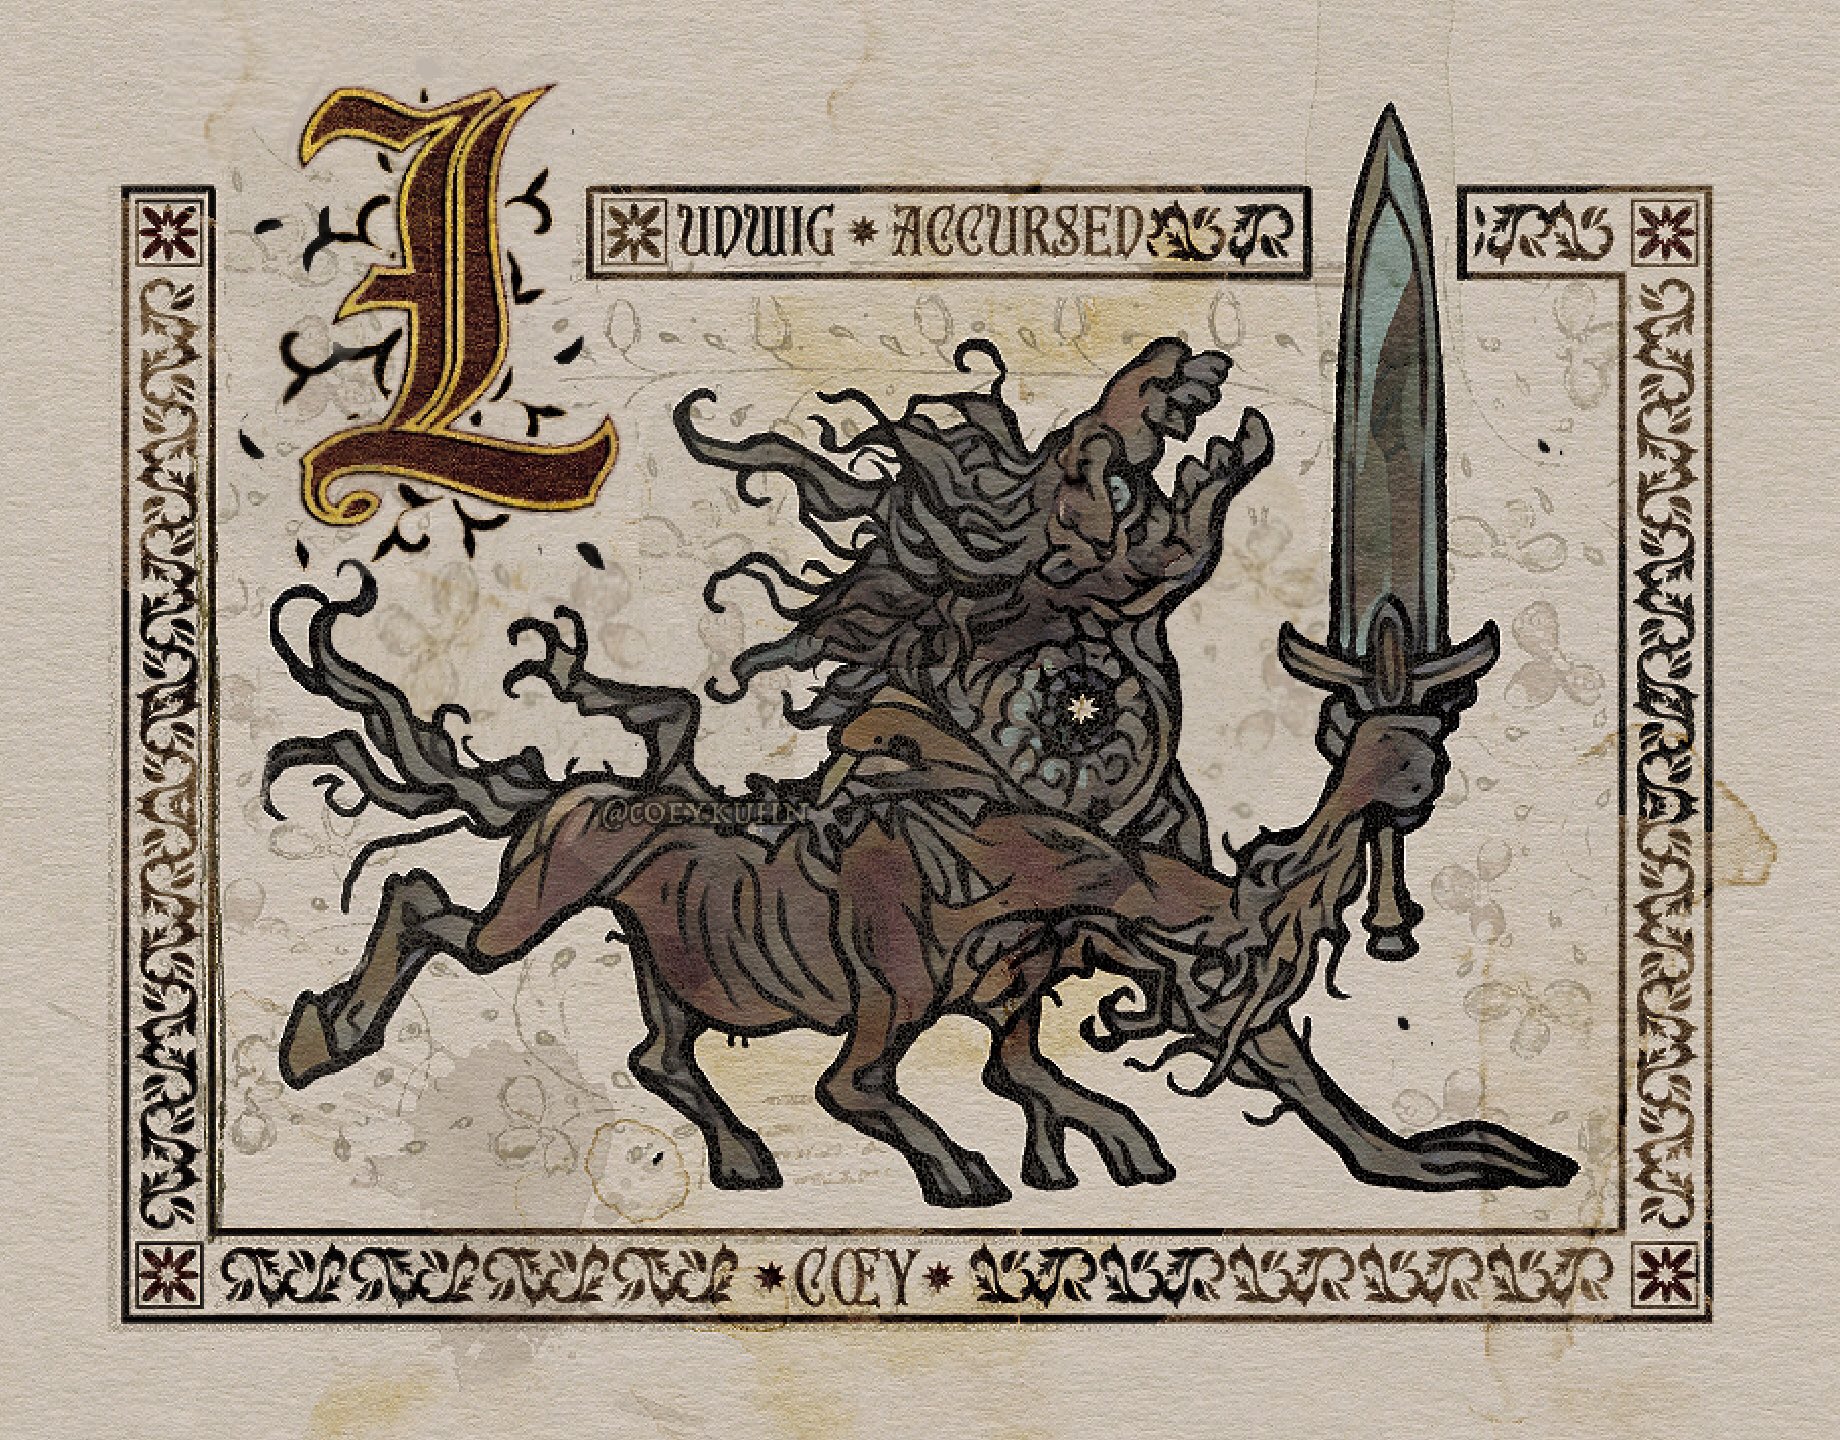 LUDWIG ACCURSED
@COEYKUHN
CŒY